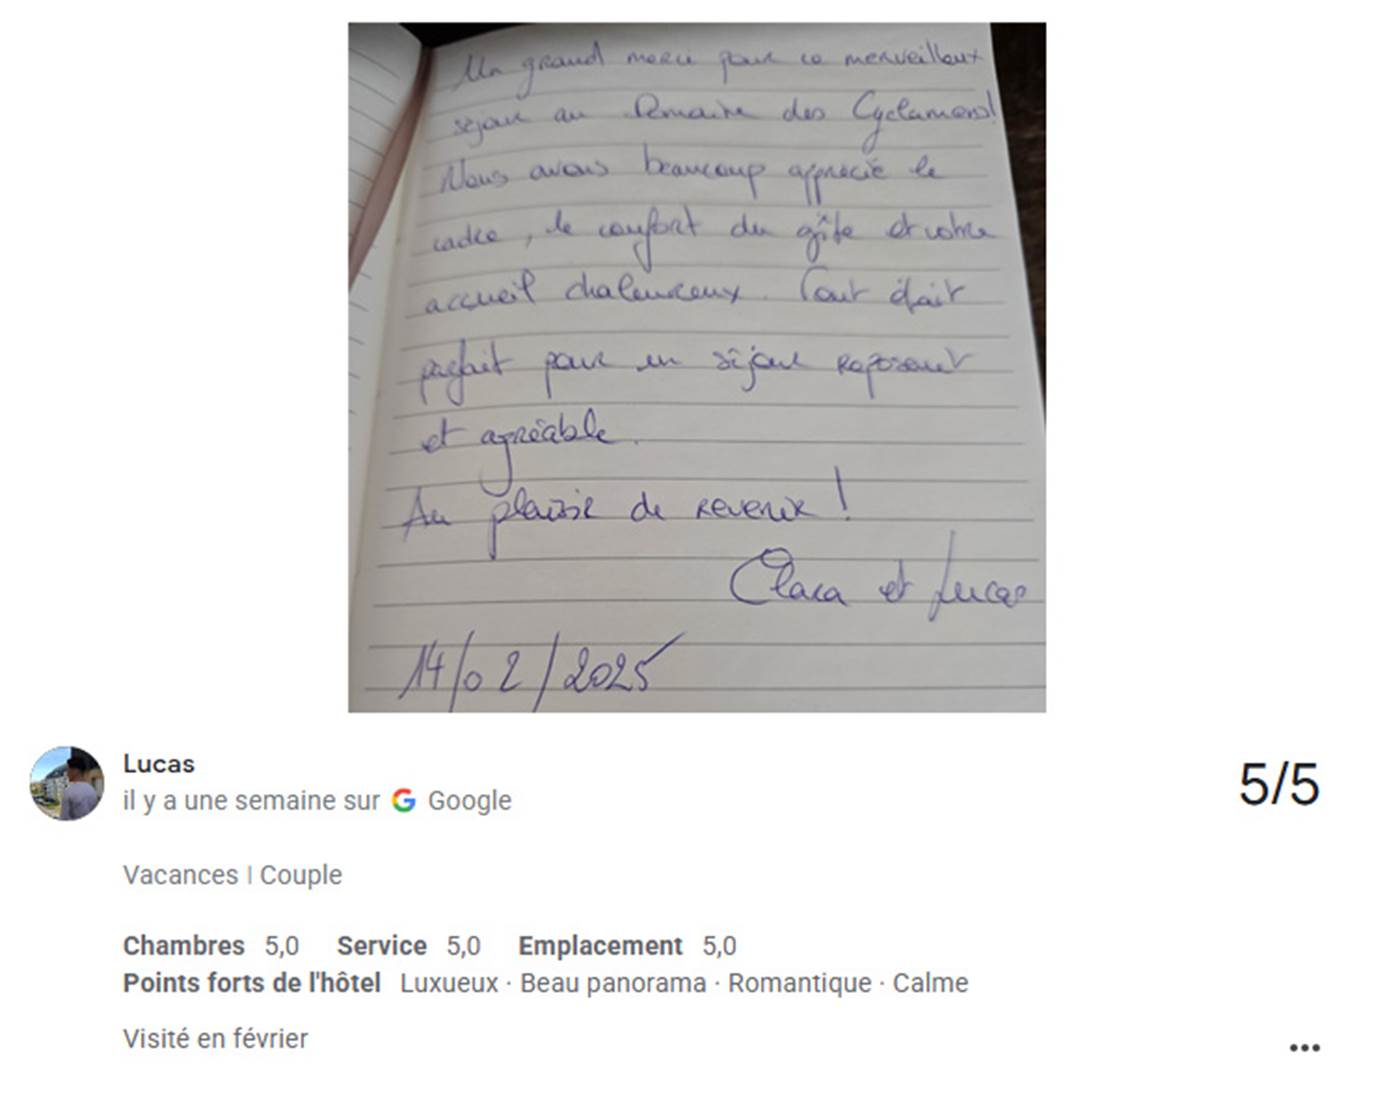 Un grand merci pour ce merveilleux
séjour au Domaine des Cyclamens!
Nous avons beaucoup apprécié le
cadre, le confort du gîte et votre
accueil chaleureux. Tout était
parfait pour un séjour reposant
et agréable.
Au plaisir de revenir !
Clara et Lucas
14/02/2025
Lucas
il y a une semaine sur Google
5/5
Vacances | Couple
Chambres 5,0 Service 5,0 Emplacement 5,0
Points forts de l'hôtel Luxueux · Beau panorama · Romantique · Calme
Visité en février